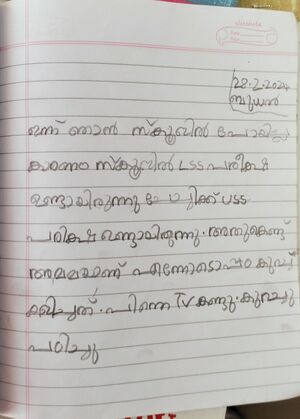 classmate
28.2.2024
ബുധൻ
ഇന്ന് ഞാൻ സ്കൂളിൽ പോയില്ല
കാരണം സ്കൂളിൽ LSS പരീക്ഷ
ഉണ്ടായിരുന്നു USS
പരീക്ഷ ഉണ്ടായിരുന്നു. അതുകൊണ്ട്
അമ്മയാണ് എന്നോടൊപ്പം
കളിച്ചത്. പിന്നെ TV കണ്ടു. കുറച്ചു
പഠിച്ചു